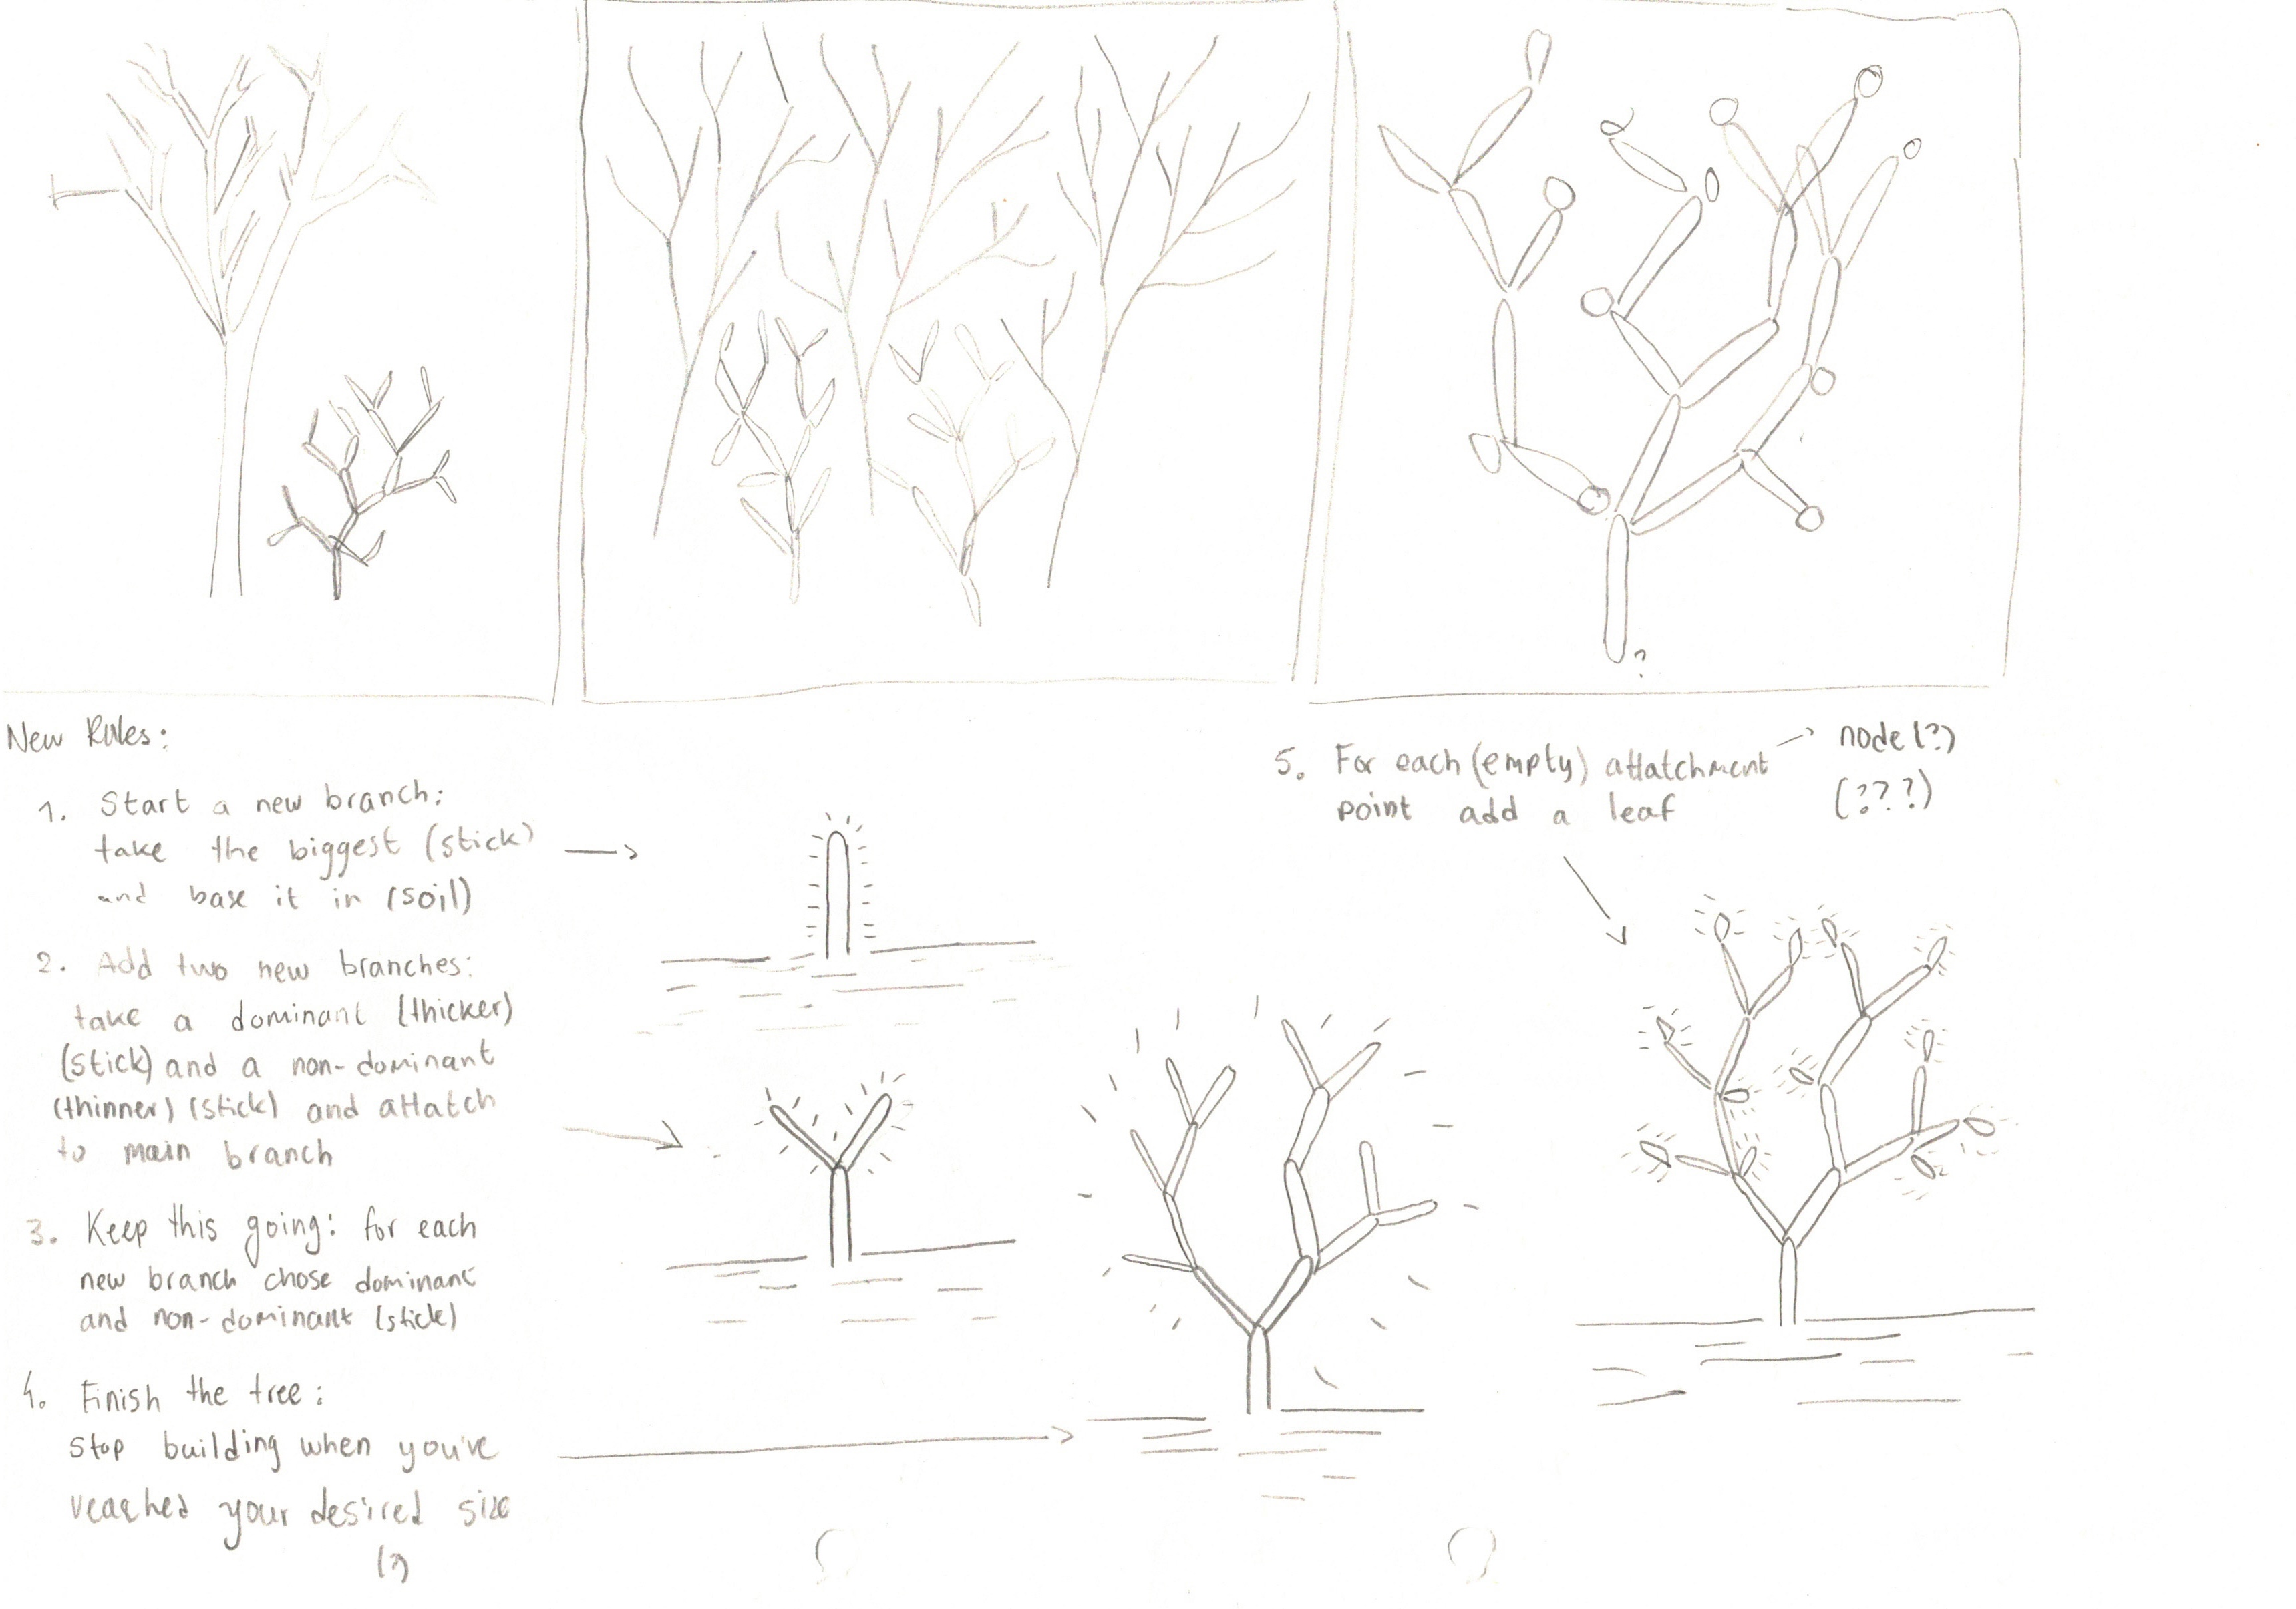 ?
New Rules:
1. Start a new branch:
take the biggest (stick)
and base it in (soil)
2. Add two new branches:
take a dominant (thicker)
(stick) and a non-dominant
(thinner) (stick) and attatch
to main branch
3. Keep this going: for each
new branch chose dominant
and non-dominant (stick)
4. Finish the tree:
stop building when you've
reached your desired size
(?)
5. For each (empty) attatchment
point add a leaf
node (?)
(???)